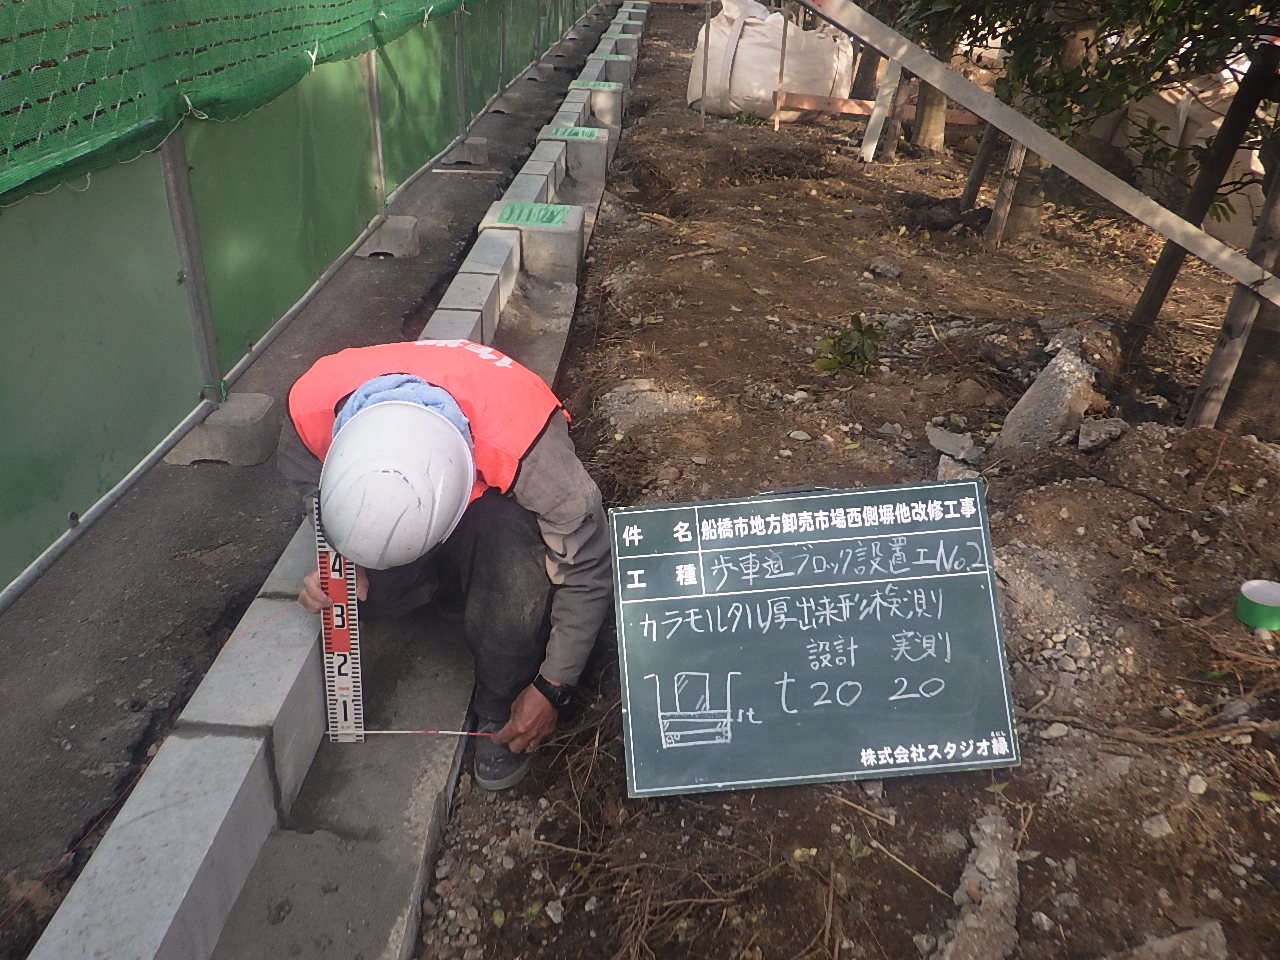 件名 船橋市地方卸売市場西側塀他改修工事
工種 歩車道ブロック設置工No.2
カラモルタル厚出来形検測
設計 実測
t 20 20
t
株式会社スタジオ縁
えにし
4
3
2
1